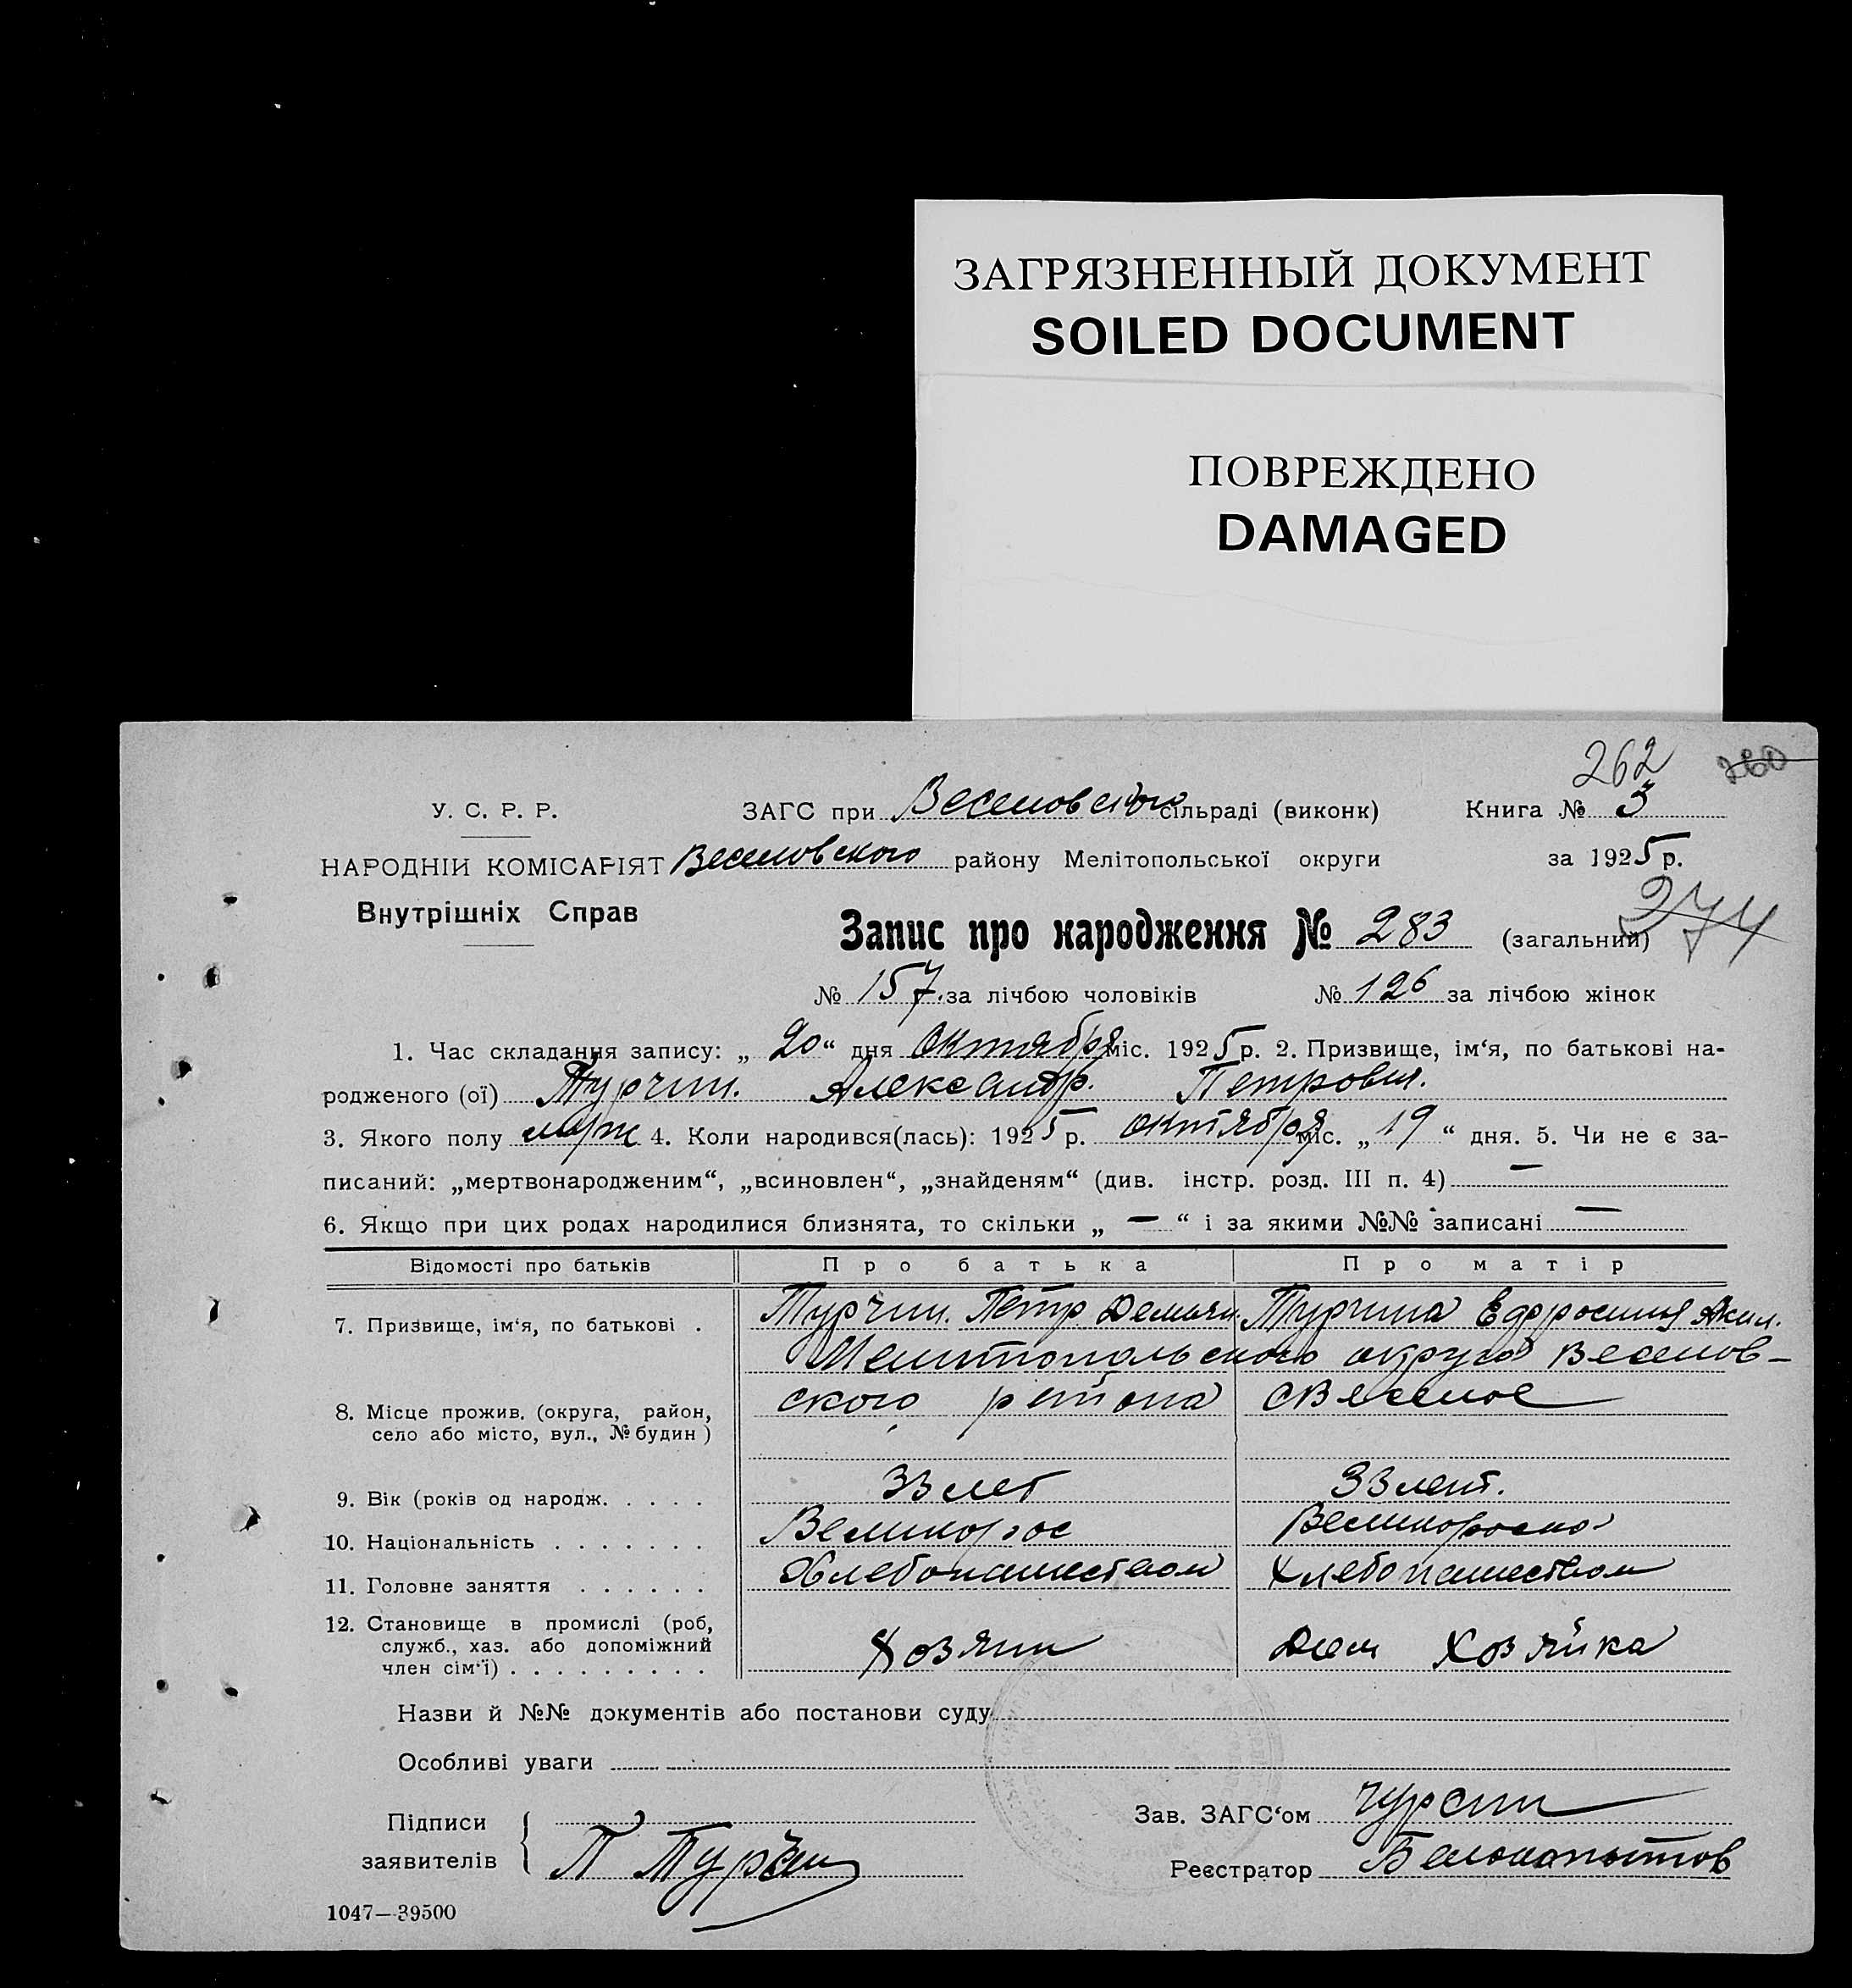 ЗАГРЯЗНЕННЫЙ ДОКУМЕНТ
SOILED DOCUMENT
ПОВРЕЖДЕНО
DAMAGED
262 260
У. С. Р. Р. ЗАГС при Веселовского сільраді (виконк) Книга № 3
НАРОДНІЙ КОМІСАРІЯТ Веселовского району Мелітопольської округи за 1925 р.
Внутрішніх Справ
274
Запис про народження № 283 (загальний)
№ 157. за лічбою чоловіків № 126 за лічбою жінок
1. Час складання запису: „ 20 “ дня Октября міс. 1925 р. 2. Призвище, ім‘я, по батькові на-
родженого (ої) Турчин. Александр. Петрович.
3. Якого полу муж 4. Коли народився(лась): 1925 р. октября міс. „ 19 “ дня. 5. Чи не є за-
писаний: „мертвонародженим“, „всиновлен“, „знайденям“ (див. інстр. розд. III п. 4) —
6. Якщо при цих родах народилися близнята, то скільки „ — “ і за якими №№ записані —
Відомості про батьків Про батька Про матір
7. Призвище, ім‘я, по батькові . Турчин. Петр Демьян. Турчина Ефросиния Аким.
Мелитопольского округа Веселов-
ского района с Веселое
8. Місце прожив. (округа, район,
село або місто, вул., № будин )
9. Вік (років од народж. . . . . 33 лет 33 лет.
10. Національність . . . . . . . Великорос Великороска
11. Головне заняття . . . . . . Хлебопашеством Хлебопашеством
12. Становище в промислі (роб,
служб., хаз. або допоміжний
член сім‘ї) . . . . . . . . . Хозяин Дом Хозяйка
Назви й №№ документів або постанови суду
Особливі уваги
Підписи
заявителів П Турчин
Зав. ЗАГС‘ом Чурсин
Реєстратор Белокопытов
1047—39500